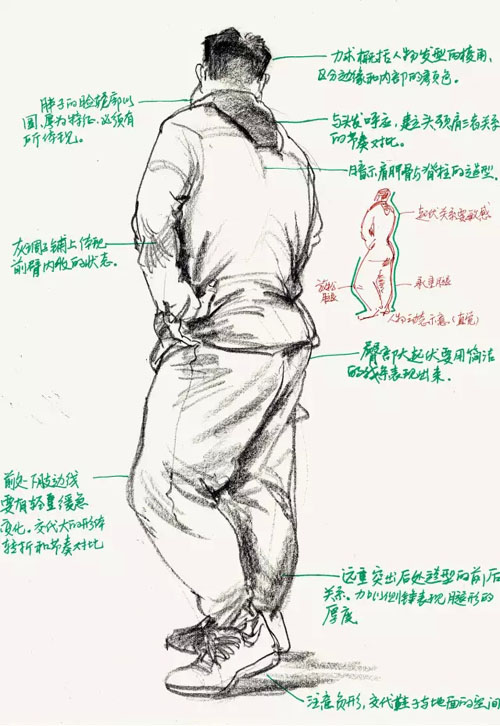 方术概括人物发型的棱角,
区分边缘和内部的薄颜色。
胖子的脸轮廓以
圆、厚为特征,必须有
所体现。
与头发呼应,建立头颈肩三者关系
的节奏对比。
暗示肩胛骨与脊柱的造型。
灰调子铺上体现
前臂内收的状态。
起伏关系要敏感
放松
承重腿
人物动态示意(直觉)
臀部大起伏要用简洁
的线条表现出来。
前处下肢边线
要有轻重缓急
变化。交代大的形体
转折和节奏对比
突出后处造型的前后
关系。
厚度
注意负形,交代鞋子与地面的空间